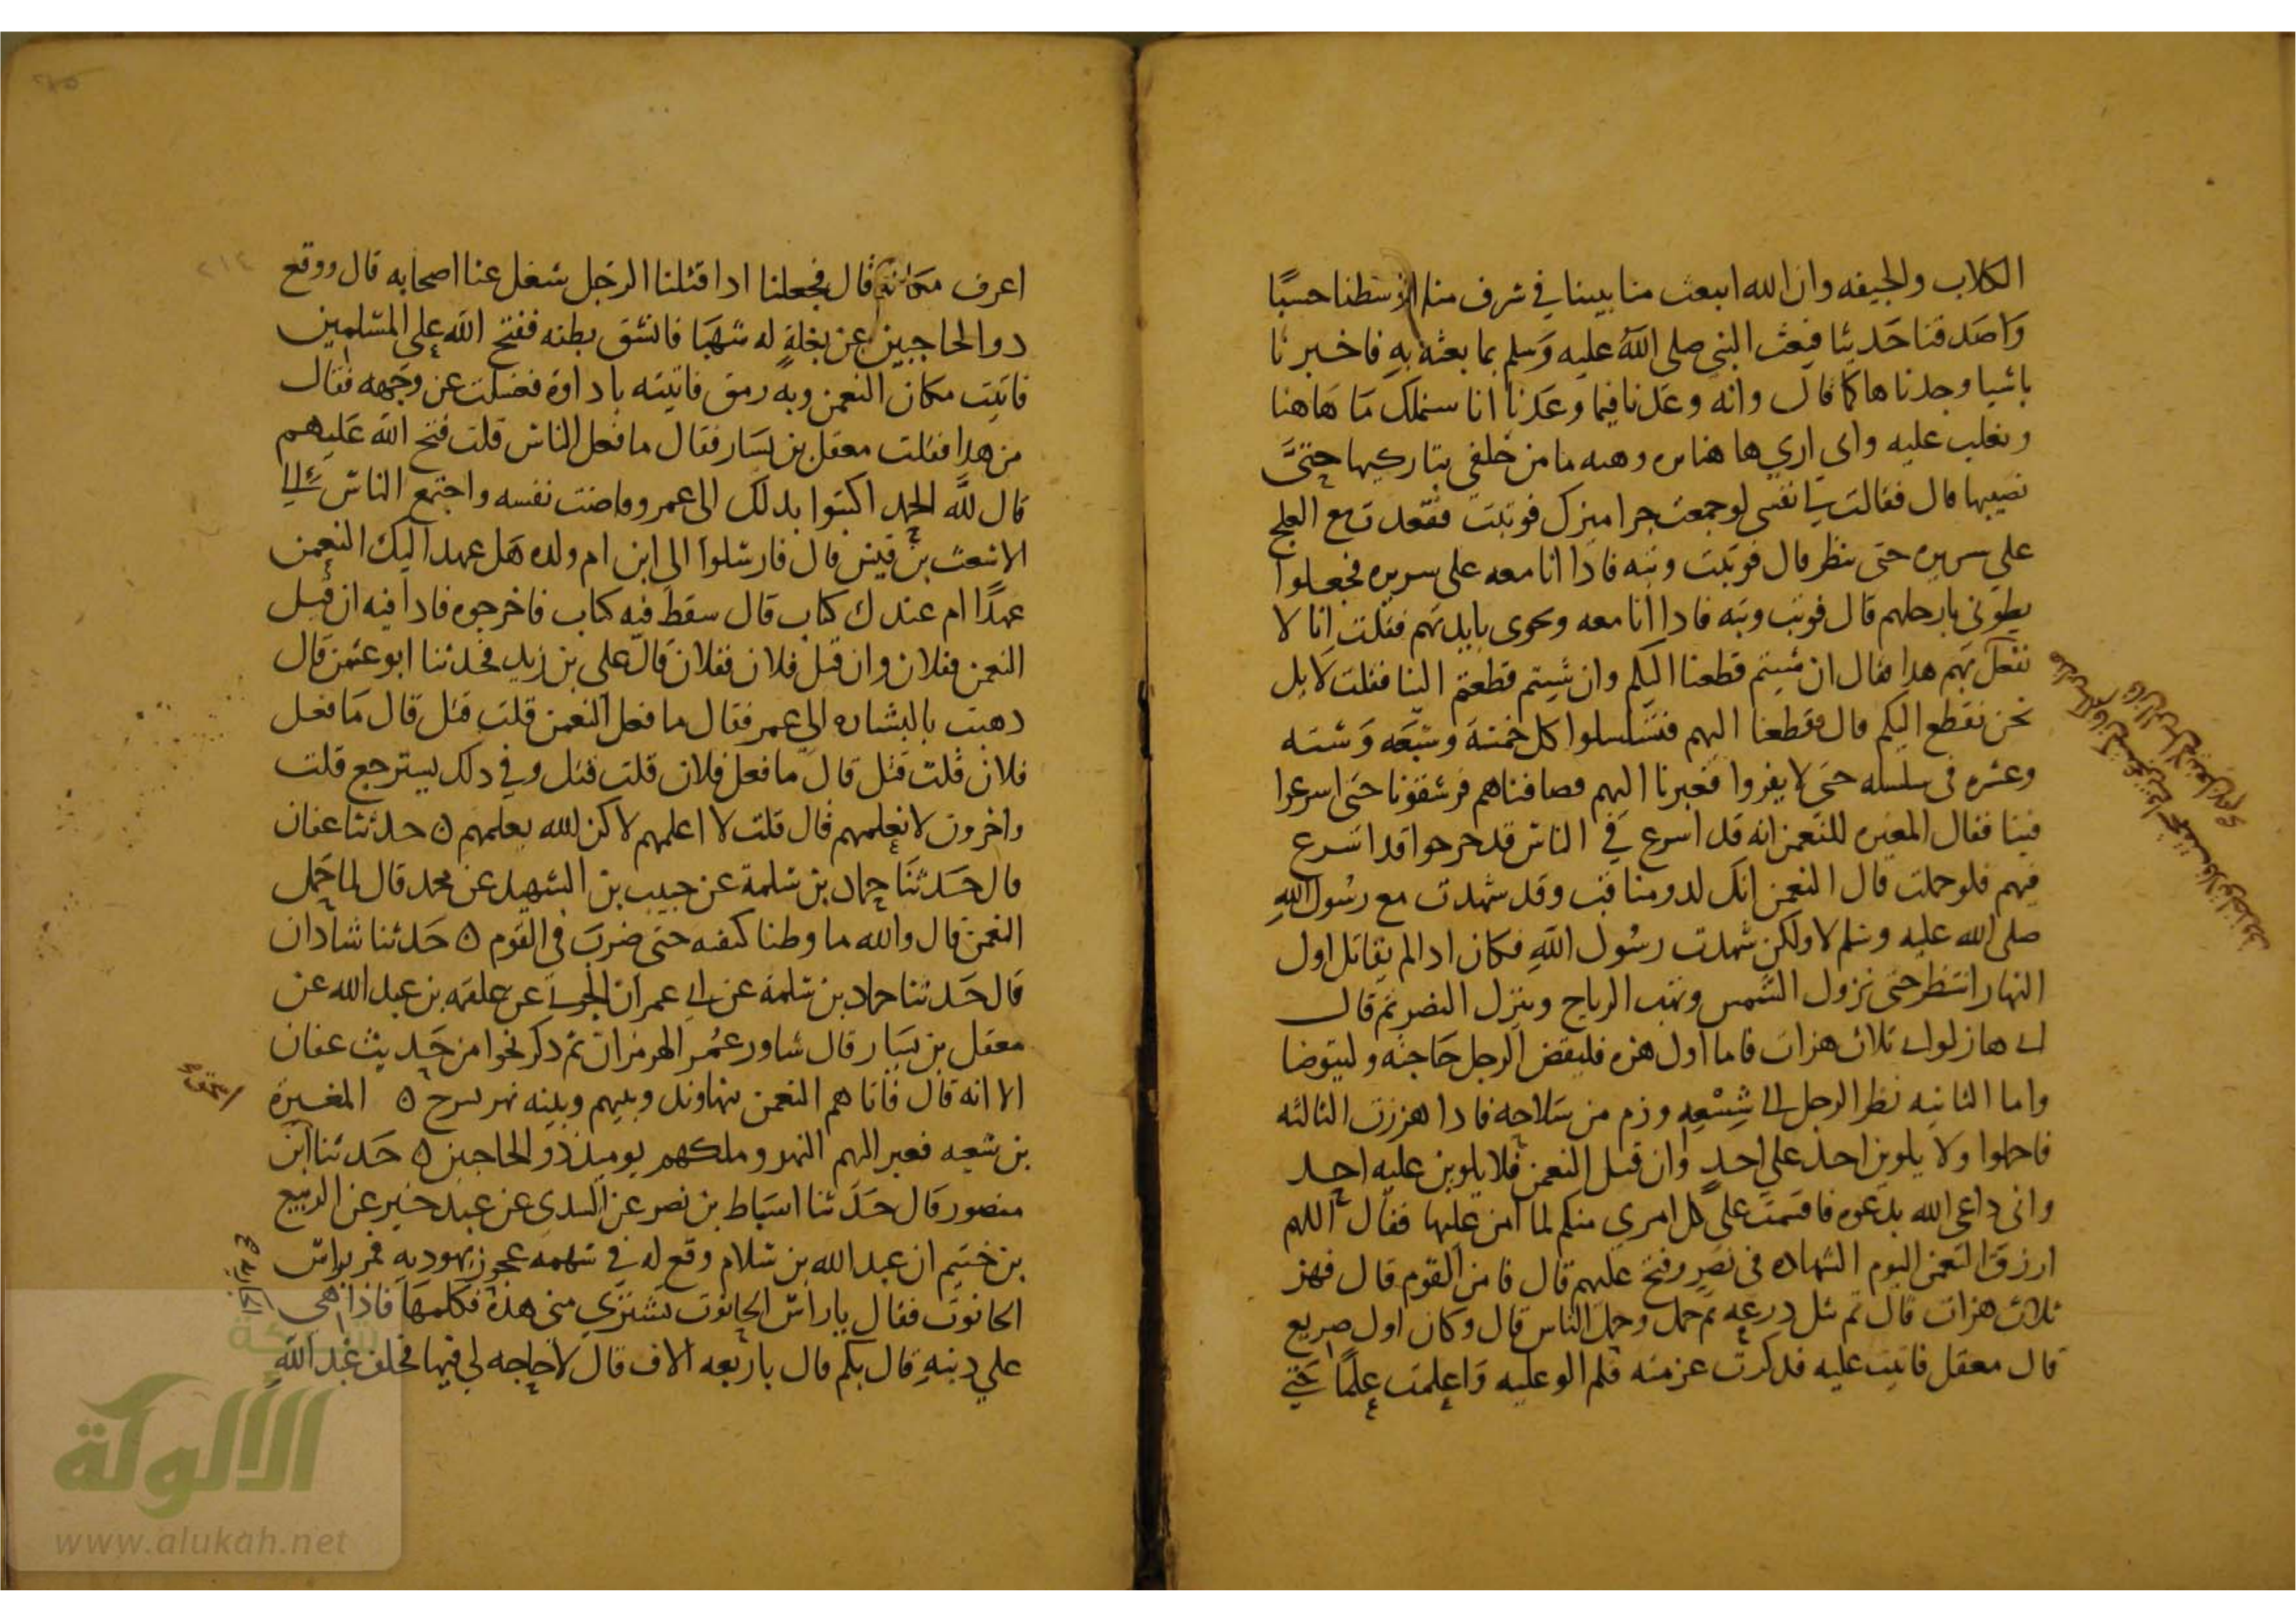 الكلاب والجيفه وان الله ابتعث منا نبينا في شرف منا اوسطنا حسبًا
وَاصَدقنا حَديثا فبعث النبي صلى اللهُ عليه وَسلم بما بعثه بهِ فاخبرنا
باشيا وجدناها كما قال وانه وعَدنا فيما وعَدنا انا سنملك مَا هَاهنا
ونغلب عليه واني اري ها هنا بزه وهيه ما من خلفي بتاركيها حتىَّ
نصيبها قال فقالت لي نفسي لو جمعت جراميزك فوثبت فقعدت مع العلج
على سريره حتى ينظر قال فوثبت وثبه فاذا انا معه على سريره فجعلوا
يطوني بارجلهم قال فوثب وثبه فاذا انا معه وبحوى بايديهم فقلت انا لا
نفعل بهم هدا فقال ان شيتم قطعنا اليكم وان شيتم قطعتم الينا فقلت لا بل
نحن نقطع اليكم قال فقطعنا اليهم فتسلسلوا كل خمسَة وسَبعَه وَستَه
وعشره في سلسله حتى لا يفروا فعبرنا اليهم فصاففناهم فرشقونا حتى اسرعوا
فينا فقال المغيره للنعمن انه قد اسرع في الناس قد خرجوا قد اسرع
فيهم فلو حملت قال النعمن انك لدو مناقب وقد شهدت مع رسُول اللهِ
صلى الله عليه وسلم لا ولكن شهدت رسُول اللهِ فكان ادا لم يقاتل اول
النهار انتظر حتى تزول الشمس وتهب الرياح وينزل النصر ثم قال
اني هاز لواي ثلاث هزات فاما اول هزه فليقض الرجل حَاجته وليتوضا
واما الثانيه نظر الرجل الي شِسْعِهِ ورم من سَلاحه فادا هززت الثالثه
فاحملوا ولا يلوين احد علي احدٍ وان قتل النعمن فلا يلوين عليه احد
واني داعي الله بدعوه فاقسمت على كل امري منكم لما امن عليها فقال اللهم
ارزق النعمن اليوم الشهاده في نصرٍ وفتح عليهم قال فامن القوم قال فهز
ثلاث هزات قال ثم نثل درعه ثم حمل وحمل الناس قال وكان اول صريع
قال معقل فاتيت عليه فدكرت عزمته فلم الو عليه وَاعلمت علمًا حتى
اعرف مكانه قال فجعلنا ادا قتلنا الرجل شغل عنا اصحابه قال ووقع
دو الحاجبين عن بغلةٍ له شهبَا فانشق بطنه ففتح الله علي المسلمين
فاتيت مكان النعمن وبه رمق فاتيته باداوة فغسلت عن وجهه فقال
من هدا فقلت معقل بن يسَار فقال ما فعل الناس قلت فتح الله عَليهم
قال لله الحمد اكتبوا بدلك الى عمر وفاضت نفسه واجتمع الناس الي
الاشعث بن قيس قال فارسلوا الى ابن ام ولده هَل عهد اليك النعمن
عهدًا ام عندك كتاب قال سقط فيه كتاب فاخرجوه فادا فيه ان قتل
النعمن ففلان وان قتل فلان ففلان قال علي بن زيد فحدثنا ابو عثمن قال
دهبت بالبشاره الى عمر فقال ما فعل النعمن قلت قتل قال مَا فعل
فلان قلت قتل قال ما فعل فلان قلت قتل وفي دلك يسترجع قلت
واخرون لا نعلمهم قال قلت لا اعلمهم لاكن الله يعلمهم ه حدثنا عفان
قال حَدثنَا حماد بن سَلمة عن حبيب بن الشهيد عن محمد قال لما حَمل
النعمن قال والله ما وطنا كتفيه حتى ضربَ في القوم ه حَدثنا شاذان
قال حَدثنا حماد بن سَلمة عن ابي عمران الجوني عن علقمه بن عبد الله عن
معقل بن يسَار قال شاور عمُر الهرمزان ثم دكر نحوا من حَديث عفان
الا انه قال فاتاهم النعمن بنهاوند وبينهم وبينه نهر يسرح ه المغيرة
بن شعبه فعبر اليهم النهر وملكهم يوميذ ذو الحاجبين ه حَدثنا ابن
منصور قال حَدثنا اسبَاط بن نصر عن السدي عن عبد خير عن الربيع
بن خثيم ان عبد الله بن سلام وقع له في سَهمه عجوز يهوديه فمر براس
الجالوت فقال ياراس الجالوت تَشتري مني هذه فكلمهَا فاذا هي
علي دينهِ قال بكم قال باربعه الاف قال لا حاجه لي فيها فحلف عَبد الله
الألوكة
www.alukah.net